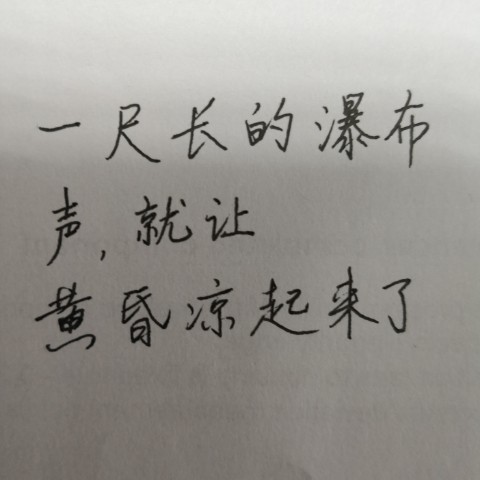 一尺长的瀑布
声,就让
黄昏凉起来了